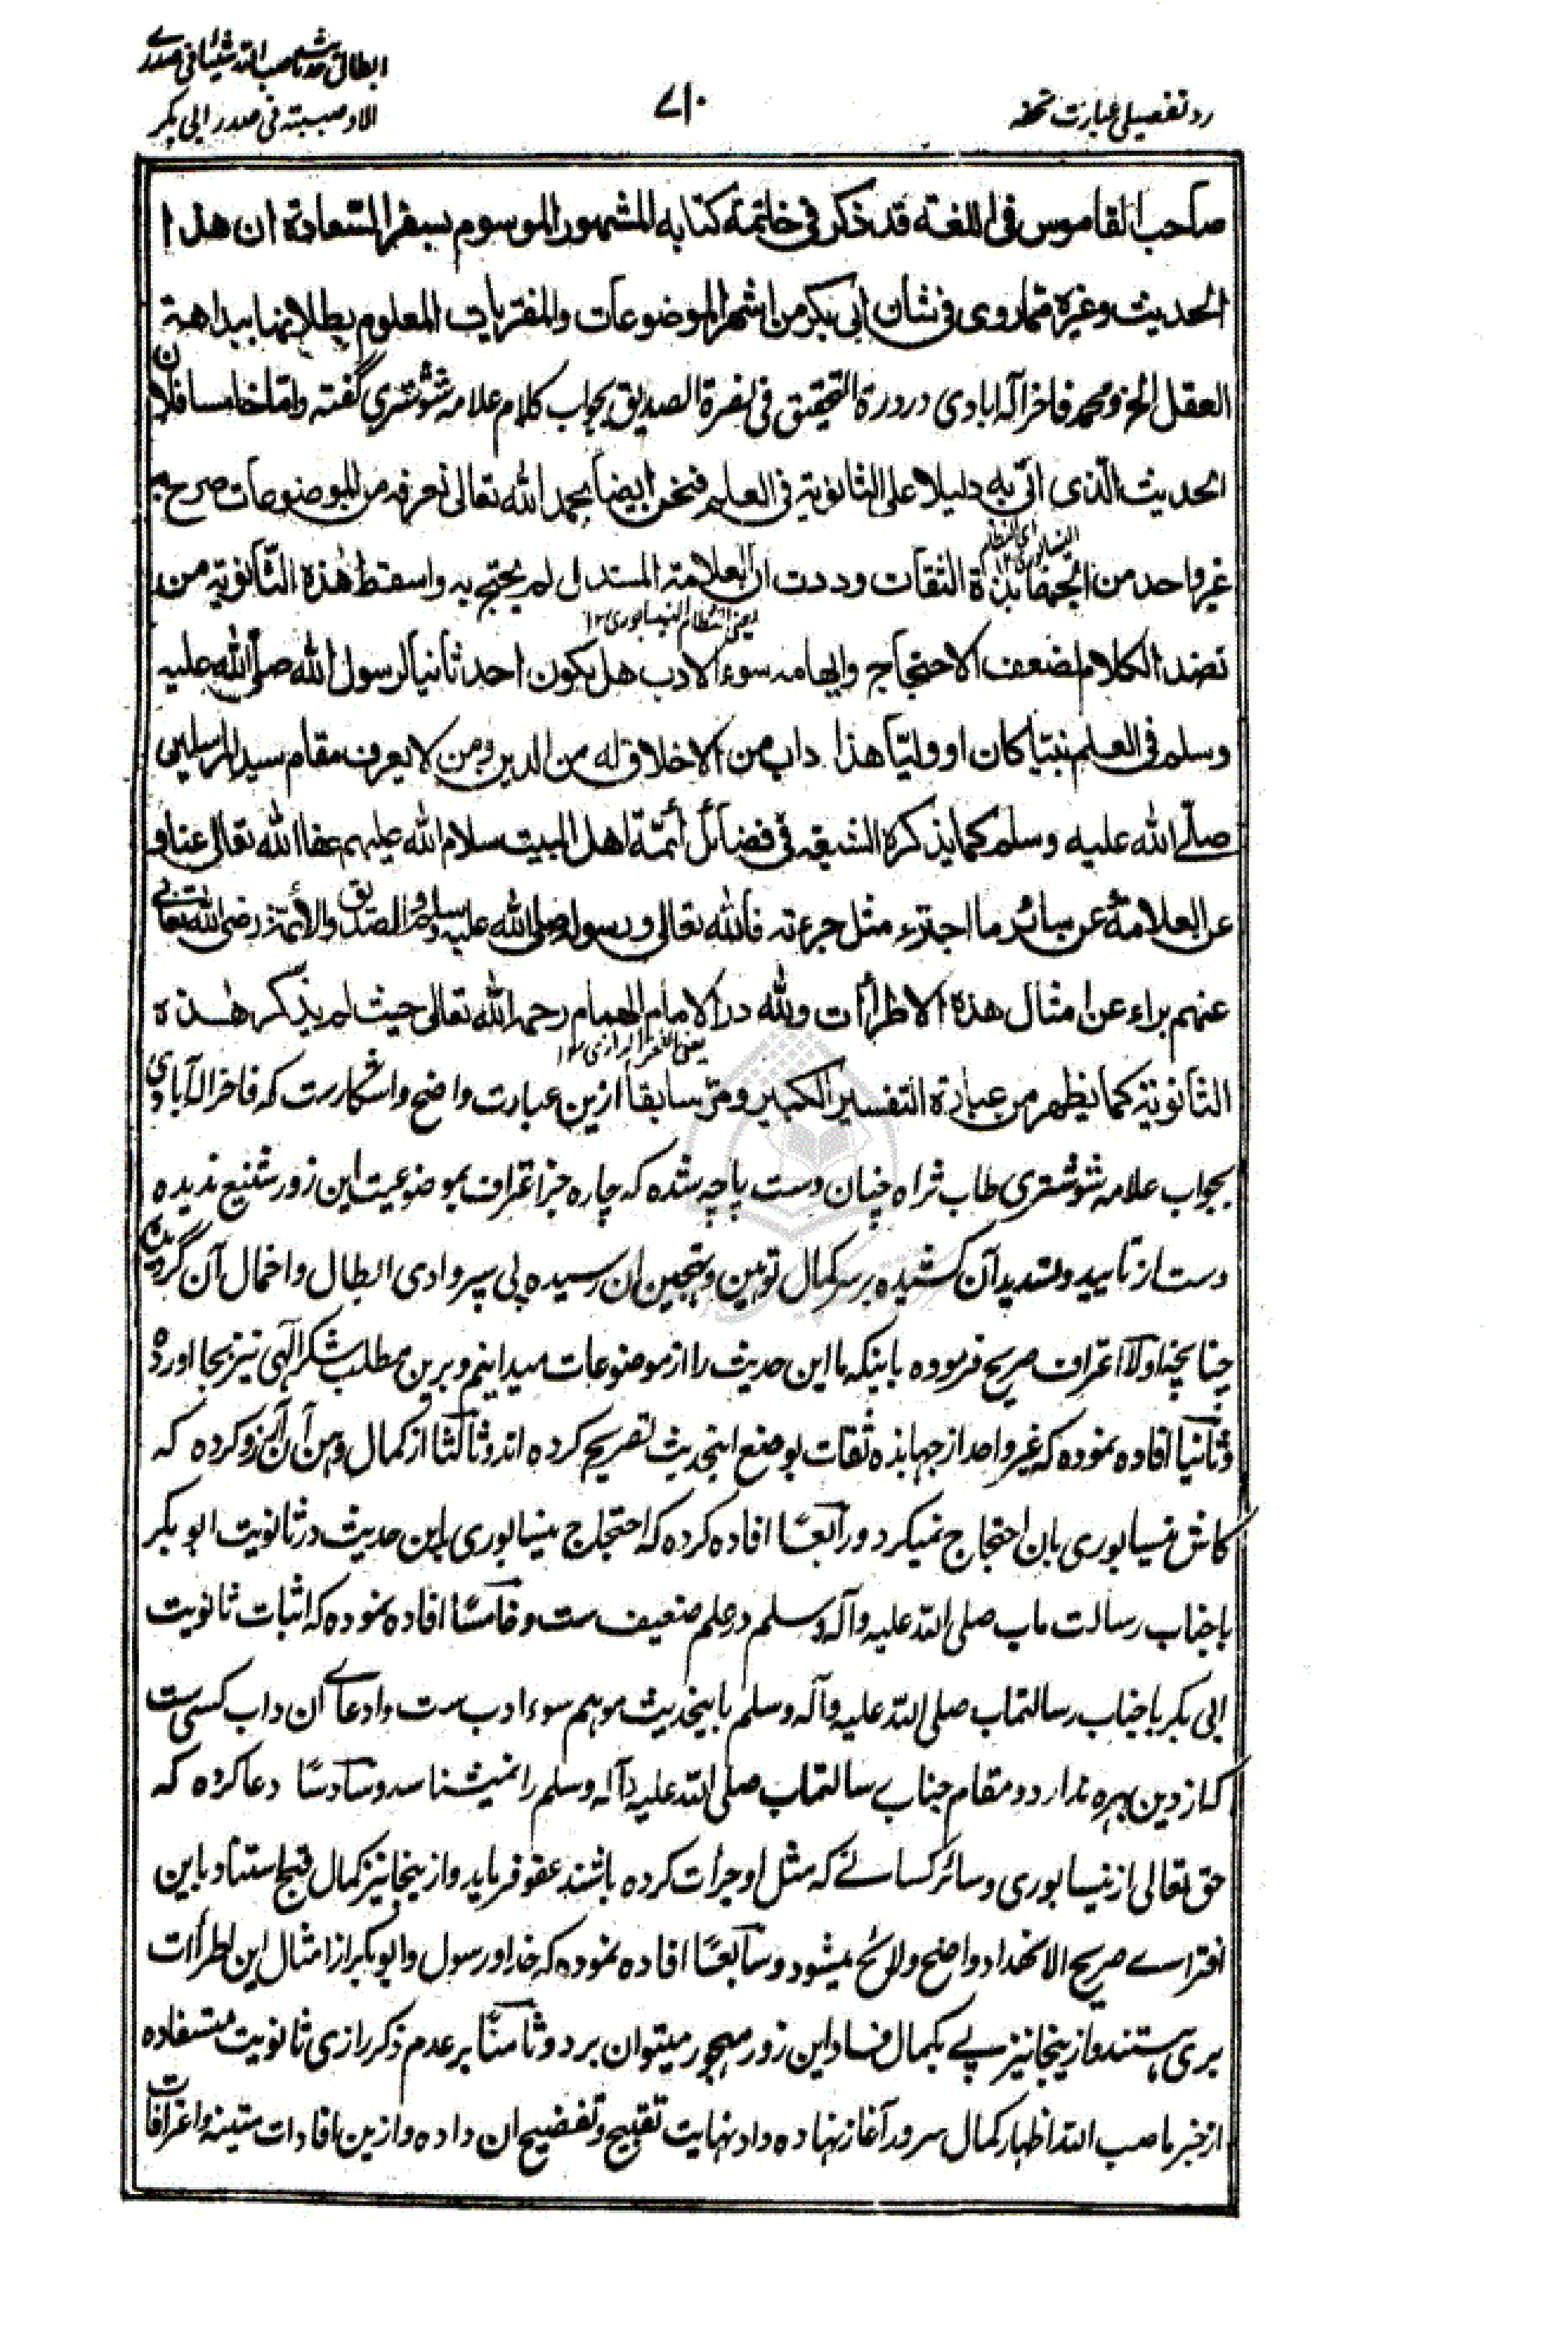 ابطال حدیث ما صب الله شیئا فی صدری
الا و صببته فی صدر ابی بکر
۷۱۰
رد تفصیلی عبارت تحفه
صاحب القاموس فی اللغة قد ذکر فی خاتمة کتابه المشهور الموسوم بسفر السعادة ان هذا
الحدیث وغیره مما روی فی شان ابی بکر من اشهر الموضوعات والمفتریات المعلوم بطلانها ببداهة
العقل الخ و محمد فاخر آله ابادی در درة التحقیق فی نصرة الصدیق بجواب کلام علامه شوشتری گفته واما خامسا فلان
الحدیث الذی اتی به دلیلا علی الثانویة فی العلم فنحن ایضا بحمد الله تعالی نعرفه من الموضوعات صرح به
غیر واحد من الجهابذة الثقات وددت ان العلامة المستدل لم یحتج به واسقط هذه الثانویة من
یعنی النظام النیسابوری ۱۲
نضد الکلام لضعف الاحتجاج وایهامه سوء الادب هل یکون احد ثانیا لرسول الله صلی الله علیه
وسلم فی العلم نبیا کان او ولیا هذا داب من لا خلاق له من الدین ومن لا یعرف مقام سید المرسلین
صلی الله علیه وسلم کما یذکره الشیعة فی فضائل أئمة اهل البیت سلام الله علیهم عفا الله تعالی عنا و
عن العلامة وعن سائر ما اجترء مثل جرءته فالله تعالی ورسوله صلی الله علیه وسلم والصدیق والأئمة رضی الله تعالی
عنهم براء عن امثال هذه الاطراأت ولله در الامام الهمام رحمه الله تعالی حیث لم یذکر هذه
یعنی الفخر الرازی ۱۲
الثانویة کما یظهر من عبارة التفسیر الکبیر ومر سابقا ازین عبارت واضح و اشکارست که فاخر اله آبادی
بجواب علامه شوشتری طاب ثراه چنان دست پاچه شده که چاره جز اعتراف بموضوعیت این زور شنیع ندیده
دست از تایید و تشدید آن کشیده بر سر کمال توهین و تهجین ان رسیده پی سپر وادی ابطال و اخمال آن گردیده
چنانچه اولاً اعتراف صریح فرموده باینکه ما این حدیث را از موضوعات میدانیم و برین مطلب شکر الهی نیز بجا اورده
و ثانیا افاده نموده که غیر واحد از جهابذه ثقات بوضع اینحدیث تصریح کرده اند و ثالثا از کمال وهن آن آرزو کرده که
کاش نیسابوری بان احتجاج نمیکرد و رابعًا افاده کرده که احتجاج نیسابوری باین حدیث در ثانویت ابو بکر
با جناب رسالت ماب صلی الله علیه وآله وسلم در علم ضعیف ست و خامسًا افاده نموده که اثبات ثانویت
ابی بکر با جناب رسالتماب صلی الله علیه وآله وسلم باینحدیث موهم سوء ادب ست و ادعاے ان داب کسی ست
که از دین بهره ندارد و مقام جناب رسالتماب صلی الله علیه وآله وسلم را نمیشناسد و سادسًا دعا کرده که
حق تعالی از نیسابوری و سائر کسانے که مثل او جرأت کرده باشند عفو فرماید و ازینجا نیز کمال قبح استناد باین
افتراے صریح الانخداد واضح و لائح میشود و سابعًا افاده نموده که خدا و رسول و ابو بکر از امثال این اطراأت
بری هستند و ازینجا نیز پے بکمال فساد این زور مهجور میتوان برد و ثامنًا بر عدم ذکر رازی ثانویت مستفاده
از خبر ما صب الله اظهار کمال سرور آغاز نهاده داد نهایت تقبیح و تفضیح ان داده و ازین افادات متینه و اعترافات